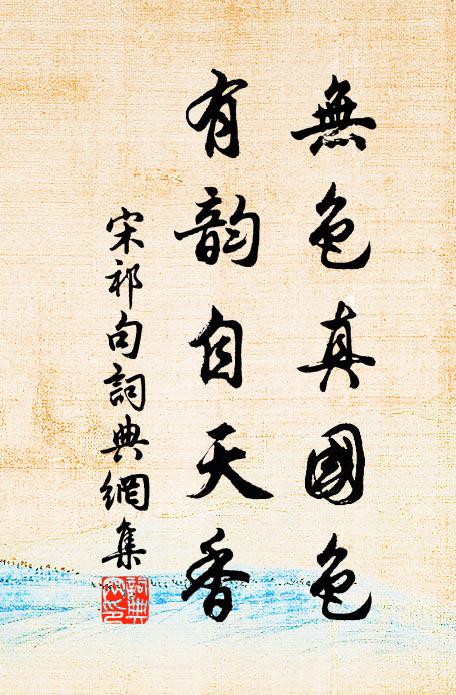 無色真國色
有韵自天香
宋祁句詞典網集